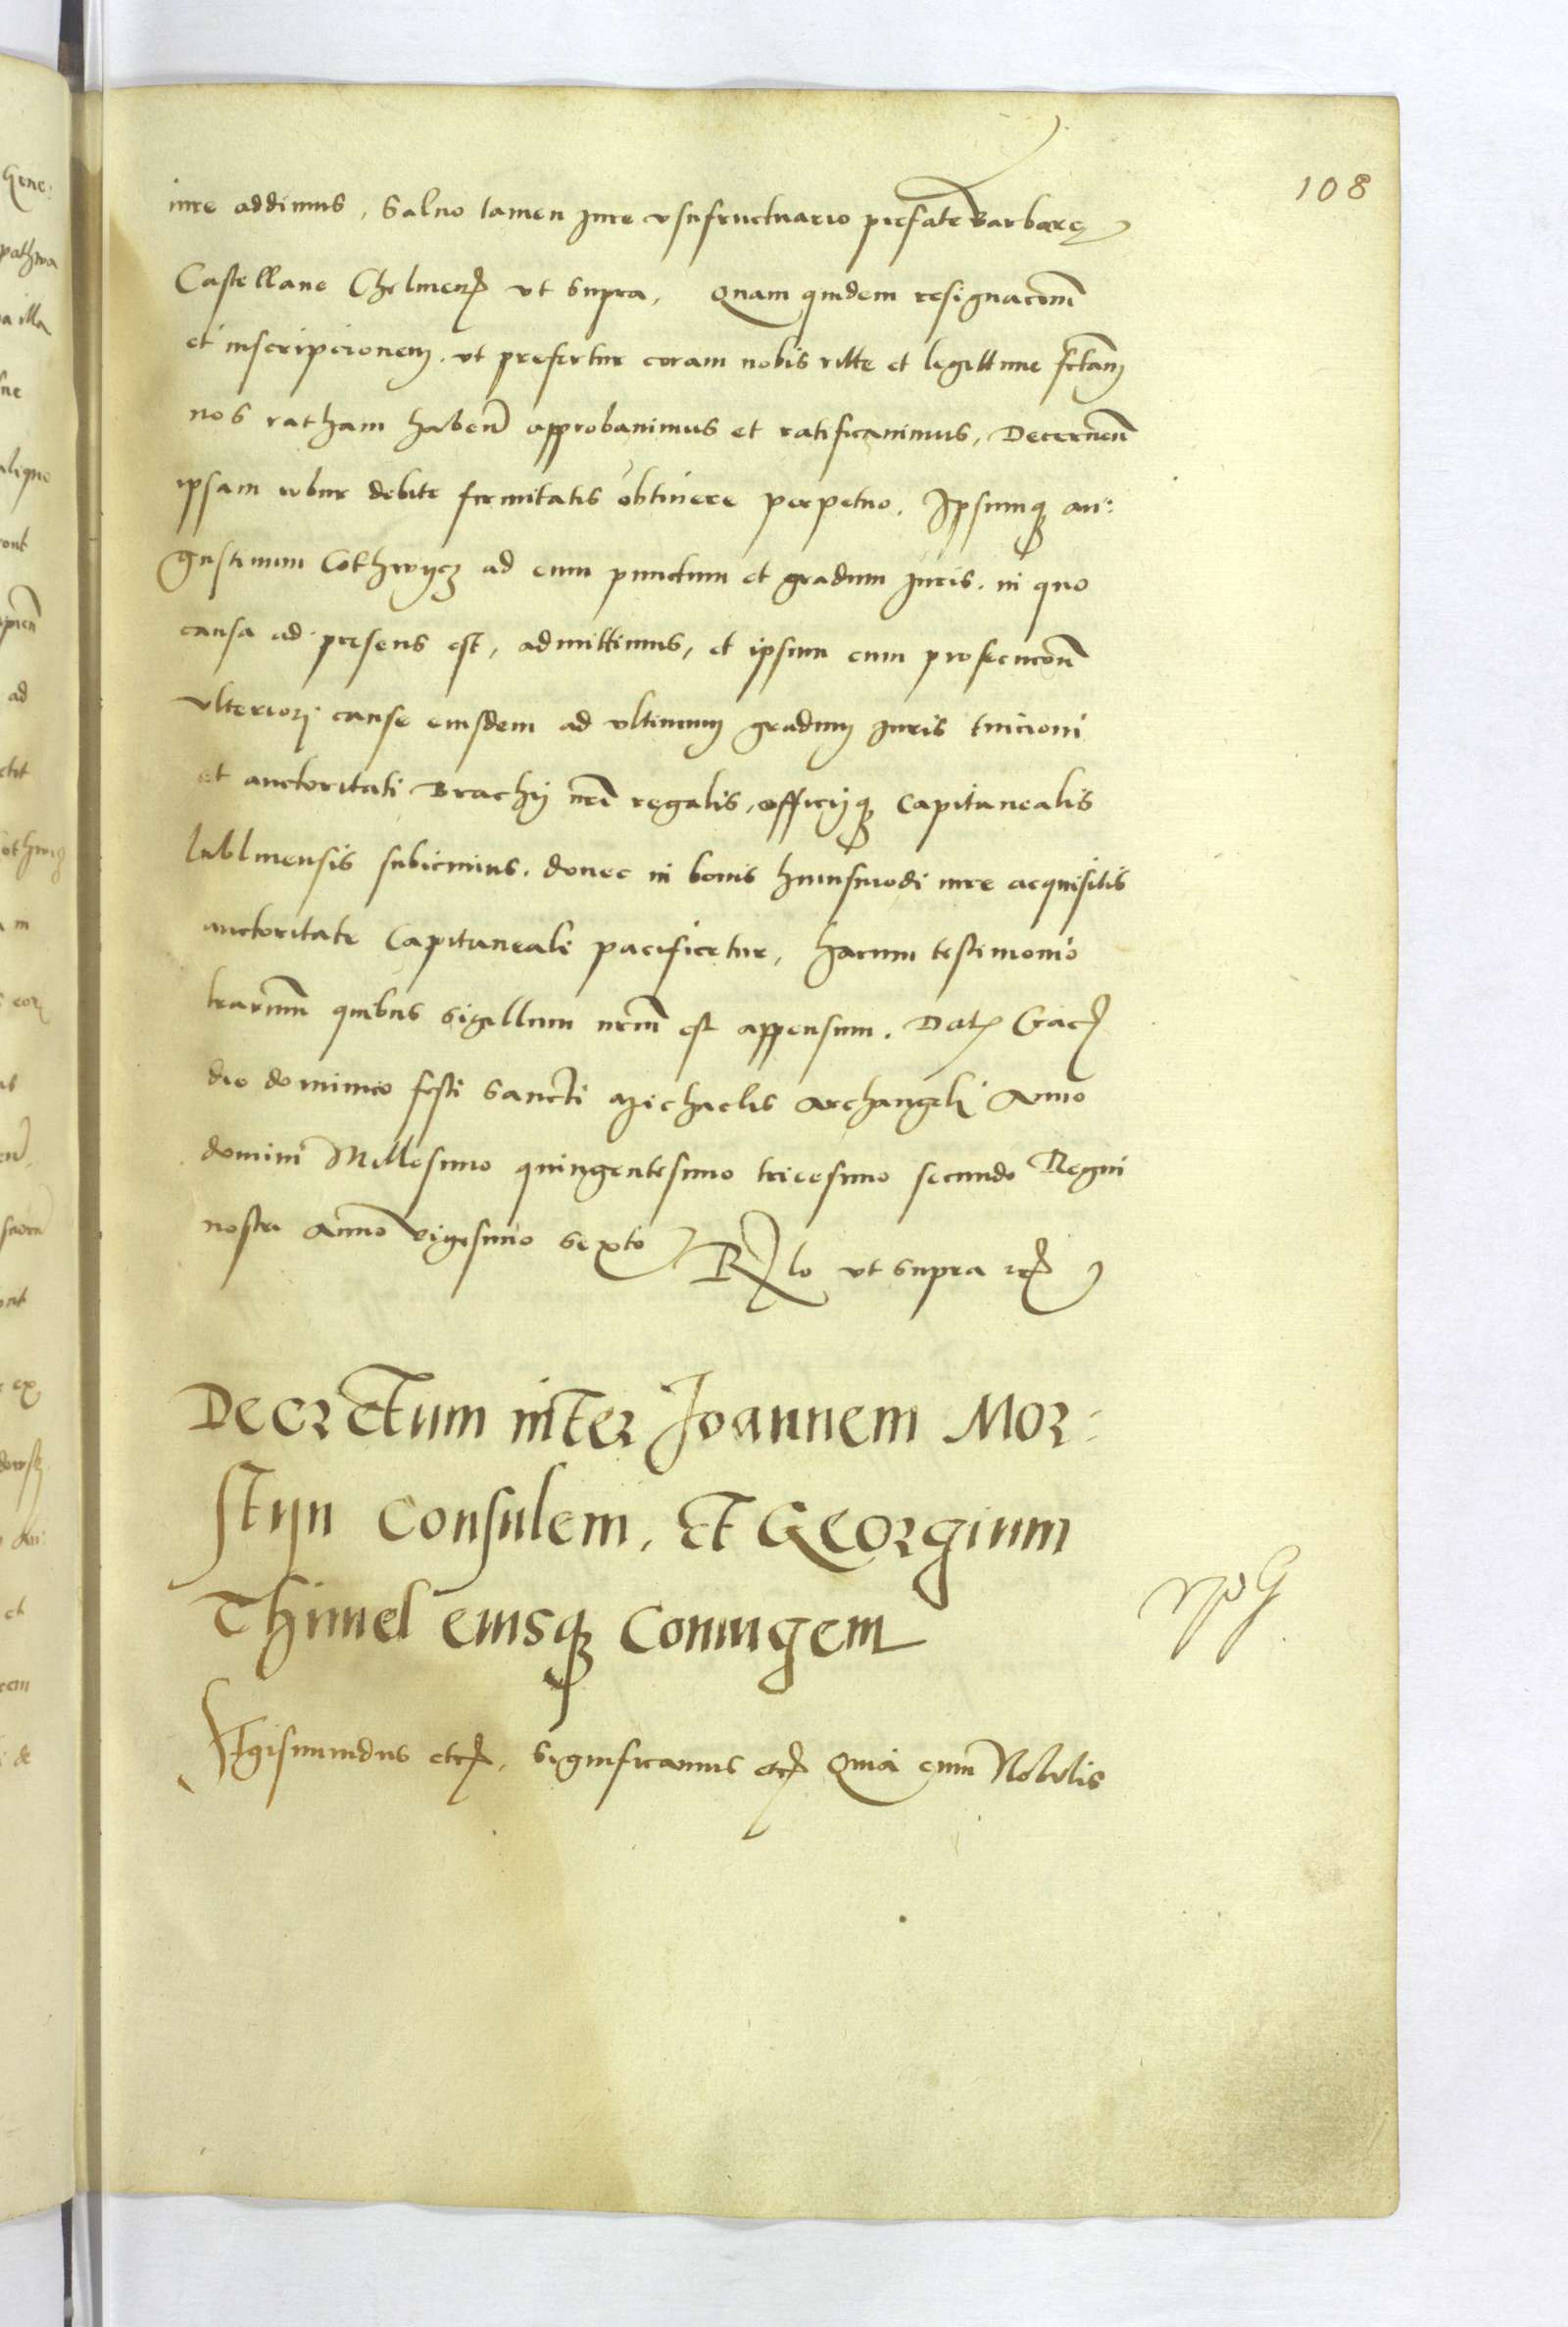 108
iure addimus, Saluo tamen Iure vsufructuario prefate Barbarę
Castellane Chelmen̄ vt supra, Quam quidem resignacōnē
et inscripcionem, vt prefertur coram nobis ritte et legittime fctam
nos ratham haben̄ approbauimus et ratificauimus, Decernen̄
ipsam robur debite firmitatis obtinere perpetuo, Ipsumq au:
gustinum Cothwycz ad eum punctum et gradum Iuris, in quo
causa ad presens est, admittimus, et ipsum cum prosecucōne
vlteriori cause eiusdem ad vltimum gradum Iuris tuicioni
et auctoritati Brachij nr̄i regalis, officijq Capitanealis
lublinensis subicimus, donec in bonis huiusmodi iure acquisitis
auctoritate Capitaneali pacificetur, harum testimonio
lrarum quibus sigillum nrm̄ est appensum, Dat Crac̄
die dominico festi Sancti Michaelis Archangeli Anno
domini Millesimo quingentesimo tricesimo secundo Regni
nostri Anno vigesimo Sexto Rlo vt supra
Decretum inter Ioannem Mor:
styn Consulem, Et Georgium
Thimel eiusq Coniugem
Sigismundus etc, Significamus etc Quia cum Nobilis